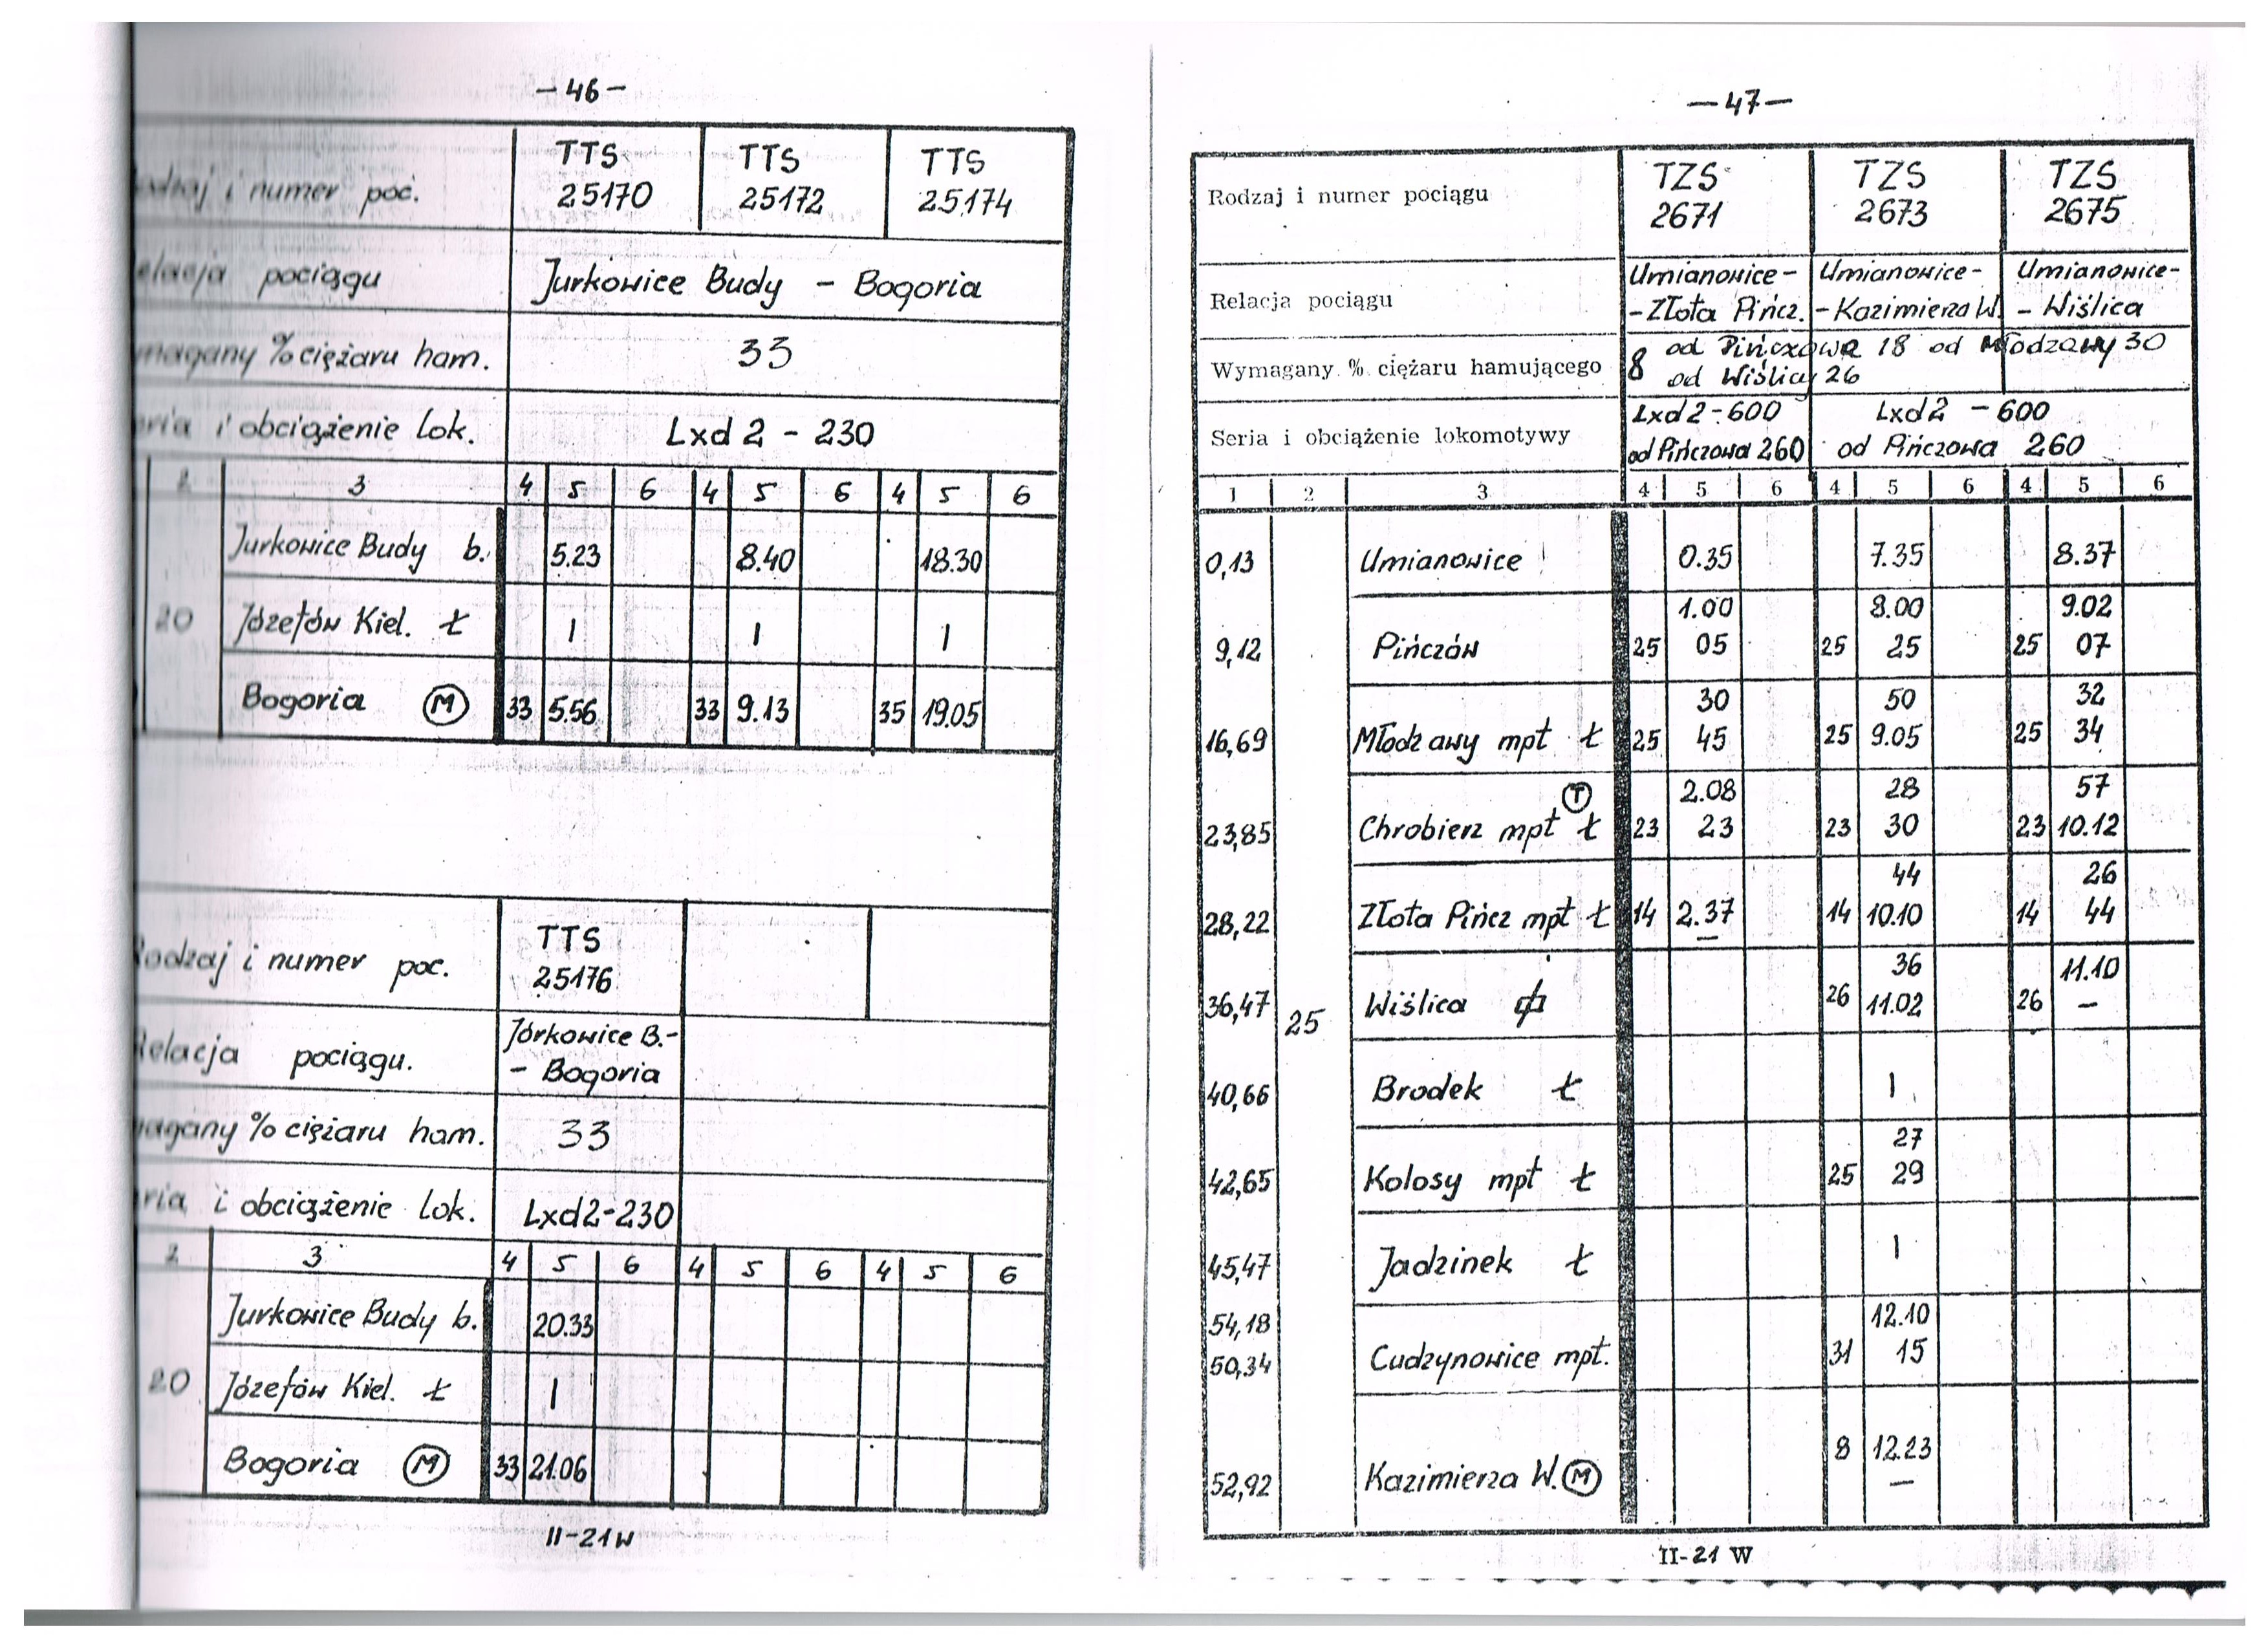 -46-
TTS TTS TTS
numer poc. 25170 25172 25174
pociągu Jurkowice Budy - Bogoria
% ciężaru ham. 33
i obciążenie lok. Lxd2 - 230
2 3 4 5 6 4 5 6 4 5 6
Jurkowice Budy b. 5.23 8.40 18.30
20 Józefów Kiel. ł | | |
Bogoria (M) 33 5.56 33 9.13 35 19.05
TTS
i numer poc. 25176
pociągu. Jórkowice B.-
- Bogoria
% ciężaru ham. 33
i obciążenie lok. Lxd2-230
2 3 4 5 6 4 5 6 4 5 6
Jurkowice Budy b. 20.33
20 Józefów Kiel. ł |
Bogoria (M) 33 21.06
II-21W
-47-
Rodzaj i numer pociągu TZS 2671 TZS 2673 TZS 2675
Relacja pociągu Umianowice - Umianowice - Umianowice -
- Złota Pińcz. - Kazimierza W. - Wiślica
Wymagany % ciężaru hamującego 8 od Pińczowa 18 od Młodzawy 30
od Wiślicy 26
Seria i obciążenie lokomotywy Lxd2-600 Lxd2 - 600
od Pińczowa 260 od Pińczowa 260
1 2 3 4 5 6 4 5 6 4 5 6
0,13 Umianowice 0.35 7.35 8.37
1.00 8.00 9.02
9,12 Pińczów 25 05 25 25 25 07
30 50 32
16,69 Młodzawy mpt ł 25 45 25 9.05 25 34
(T) 2.08 28 57
23,85 Chrobierz mpt ł 23 23 23 30 23 10.12
44 26
28,22 Złota Pińcz mpt ł 14 2.37 14 10.10 14 44
— 36 11.10
36,47 25 Wiślica 26 11.02 26 —
40,66 Brodek ł |
27
42,65 Kolosy mpt ł 25 29
45,47 Jadzinek ł |
54,18 12.10
50,34 Cudzynowice mpt. 31 15
8 12.23
52,92 Kazimierza W. (M) —
II-21 W